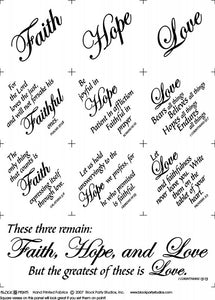 Faith
Hope
Love
For
the Lord
loves the just
and will not forsake his
Faithful
ones.
Be
joyful in
Hope
Patient in affliction
Faithful in
prayer
Love
Bears all things
Believes all things
Hopes all things
Endures
all things
The
only thing
that counts is
Faith
expressing
itself through
love.
Let us hold
unswervingly to the
Hope
we profess, for
he who promised
is faithful.
Let
Love
and faithfulness
never leave you
Write
them on the
tablet of
your heart.
These three remain:
Faith, Hope, and Love
But the greatest of these is Love.
I CORINTHIANS 13:13
Hand Printed Fabrics © 2007 Block Party Studios, Inc. www.blockpartystudios.com
Square verses on this panel will look great if you set them on point!